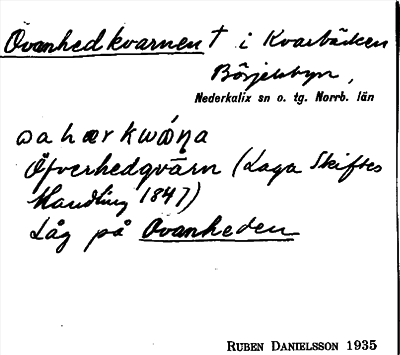 Ovanhedkvarnen † i Kvarbäcken
Börjelsbyn,
Nederkalix sn o. tg. Norrb. län
Öfverhedqvärn (Laga Skiftes
Handling 1847)
Låg på Ovanheden
RUBEN DANIELSSON 1935